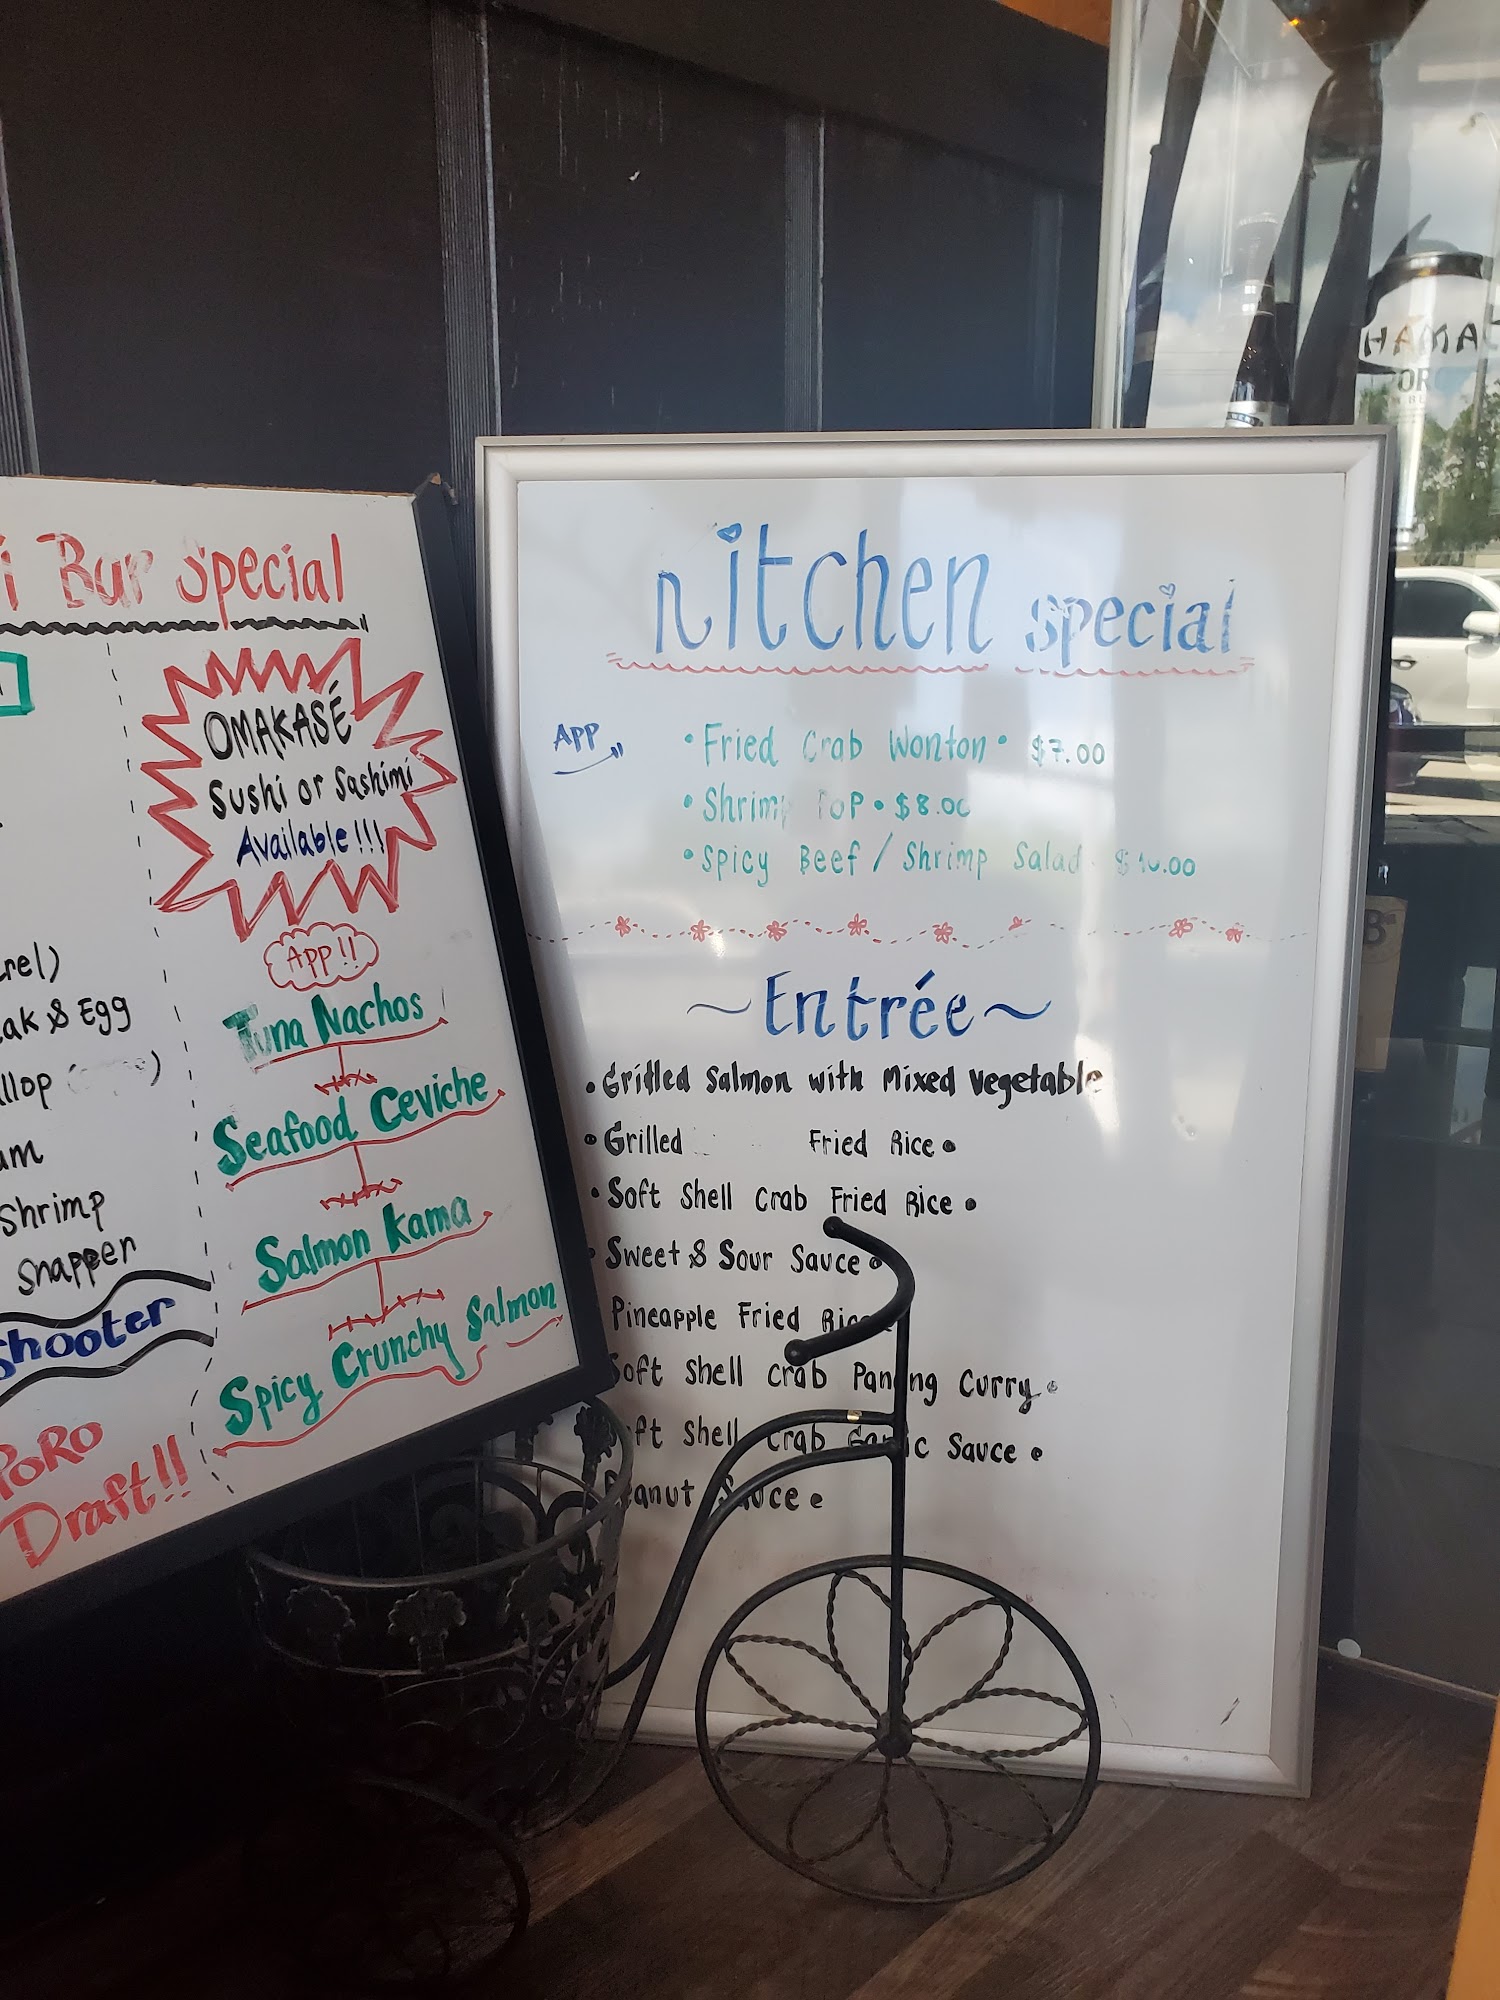 i Bar Special
OMAKASÉ
Sushi or Sashimi
Available!!!
App!!
Tuna Nachos
Seafood Ceviche
Salmon Kama
Spicy Crunchy Salmon
& Egg
Shrimp
Snapper
Shooter
PORO
Draft!!
Kitchen Special
APP
• Fried Crab Wonton • $7.00
• Shrimp PoP • $8.00
• Spicy Beef / Shrimp Salad $10.00
~Entrée~
• Grilled Salmon with Mixed Vegetable
• Grilled Fried Rice •
• Soft Shell Crab Fried Rice •
• Sweet & Sour Sauce •
Pineapple Fried Rice
Soft Shell Crab Panang Curry •
Soft Shell Crab Garlic Sauce •
Peanut Sauce •